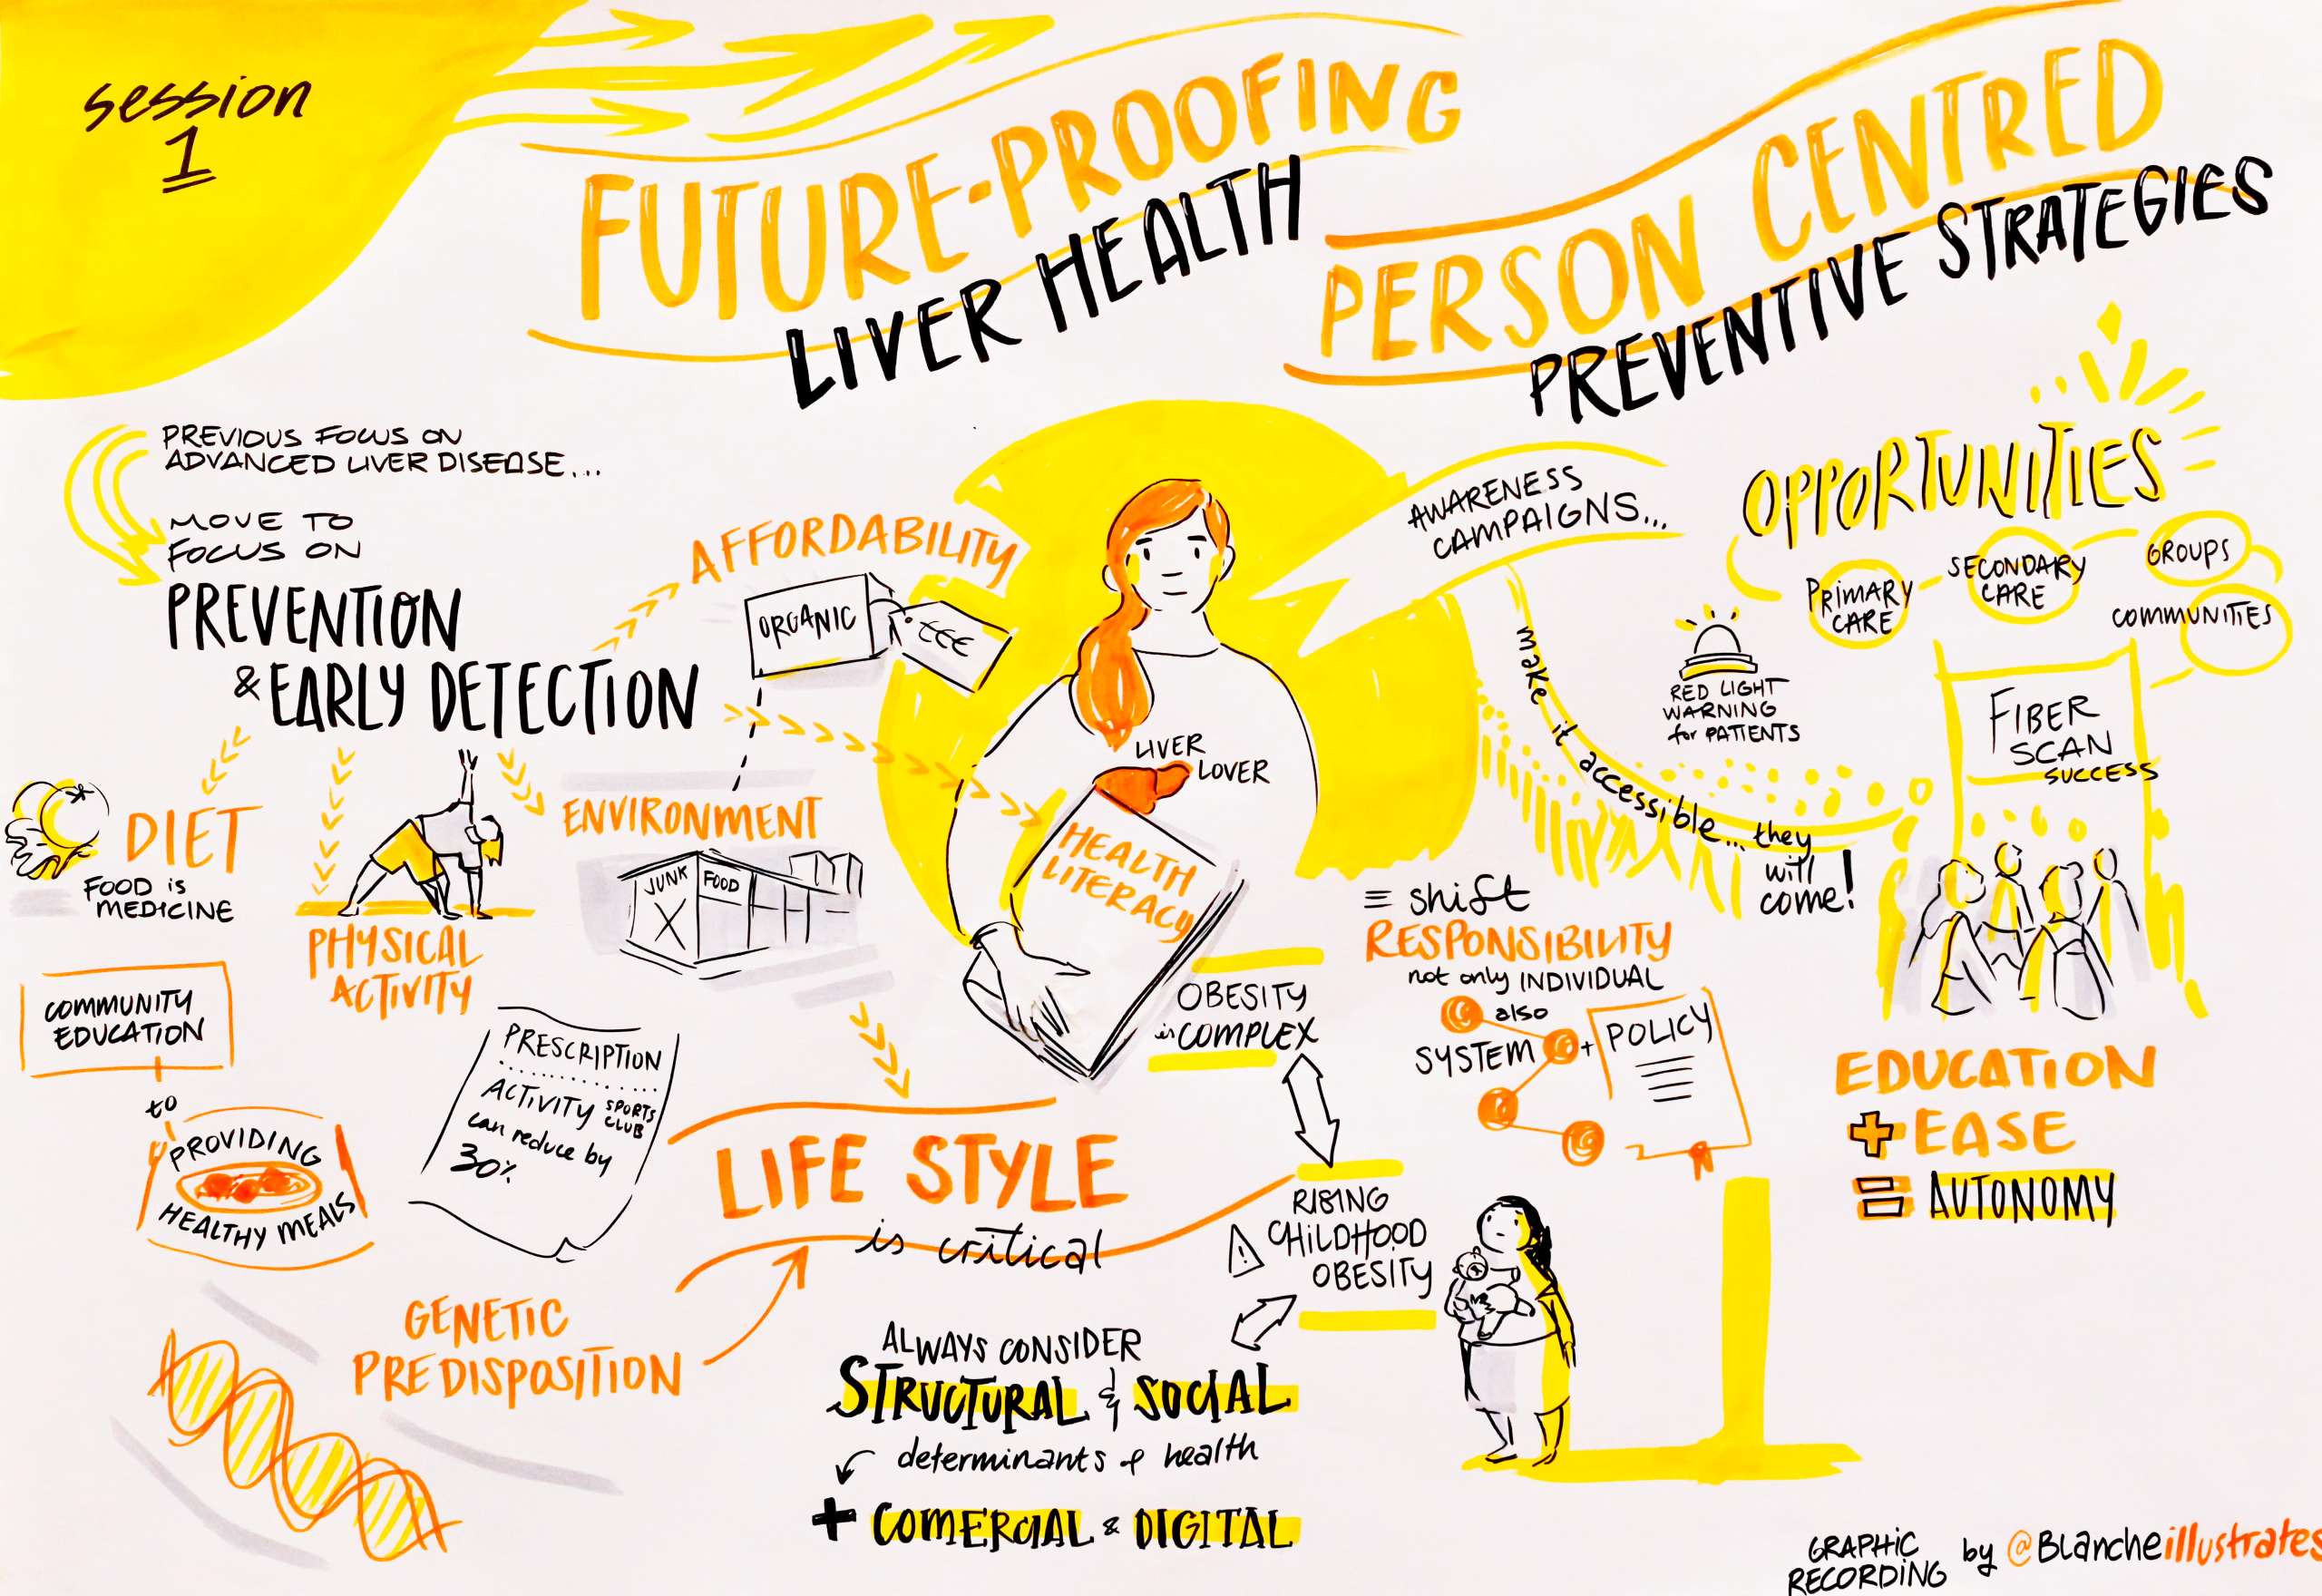 session
1
FUTURE-PROOFING
LIVER HEALTH
PERSON CENTRED
PREVENTIVE STRATEGIES
PREVIOUS FOCUS ON
ADVANCED LIVER DISEASE...
MOVE TO
FOCUS ON
PREVENTION
& EARLY DETECTION
AFFORDABILITY
ORGANIC
€€€
DIET
FOOD is
MEDICINE
PHYSICAL
ACTIVITY
ENVIRONMENT
JUNK FOOD
COMMUNITY
EDUCATION
to
PROVIDING
HEALTHY MEALS
PRESCRIPTION
ACTIVITY SPORTS
CLUB
can reduce by
30%
LIFE STYLE
is critical
GENETIC
PREDISPOSITION
LIVER
LOVER
HEALTH
LITERACY
AWARENESS
CAMPAIGNS...
make it accessible... they
will
come!
OPPORTUNITIES
PRIMARY
CARE
SECONDARY
CARE
GROUPS
COMMUNITIES
RED LIGHT
WARNING
for PATIENTS
FIBER
SCAN
SUCCESS
OBESITY
is COMPLEX
shift
RESPONSIBILITY
not only INDIVIDUAL
also
SYSTEM + POLICY
RISING
CHILDHOOD
OBESITY
ALWAYS CONSIDER
STRUCTURAL & SOCIAL
determinants of health
+ COMERCIAL & DIGITAL
EDUCATION
+ EASE
= AUTONOMY
GRAPHIC
RECORDING by @Blancheillustrates